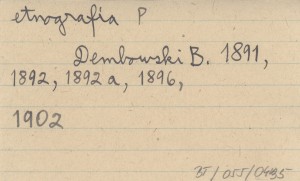 etnografia P
Dembowski B. 1891,
1892, 1892a, 1896,
1902
BJ/055/0495